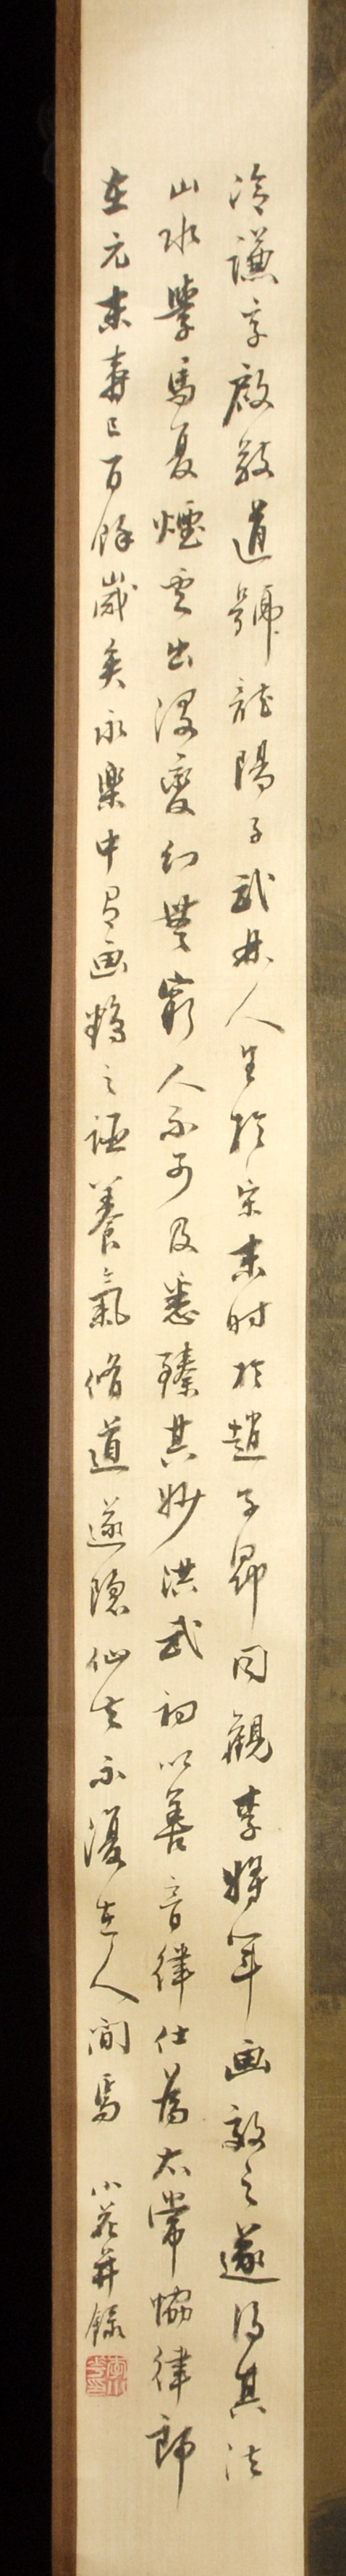 冷謙字啟敬道號龍陽子武林人生於宋末時於趙子昂同觀李將軍画效之遂得其法
山水學馬夏煙雲出沒變幻無窮人不可及悉臻其妙洪武初以善音律仕為太常協律郎
在元末壽已百餘歲矣永樂中有画鶴之誣養氣修道遂隱仙去不復在人間焉 小花并錄